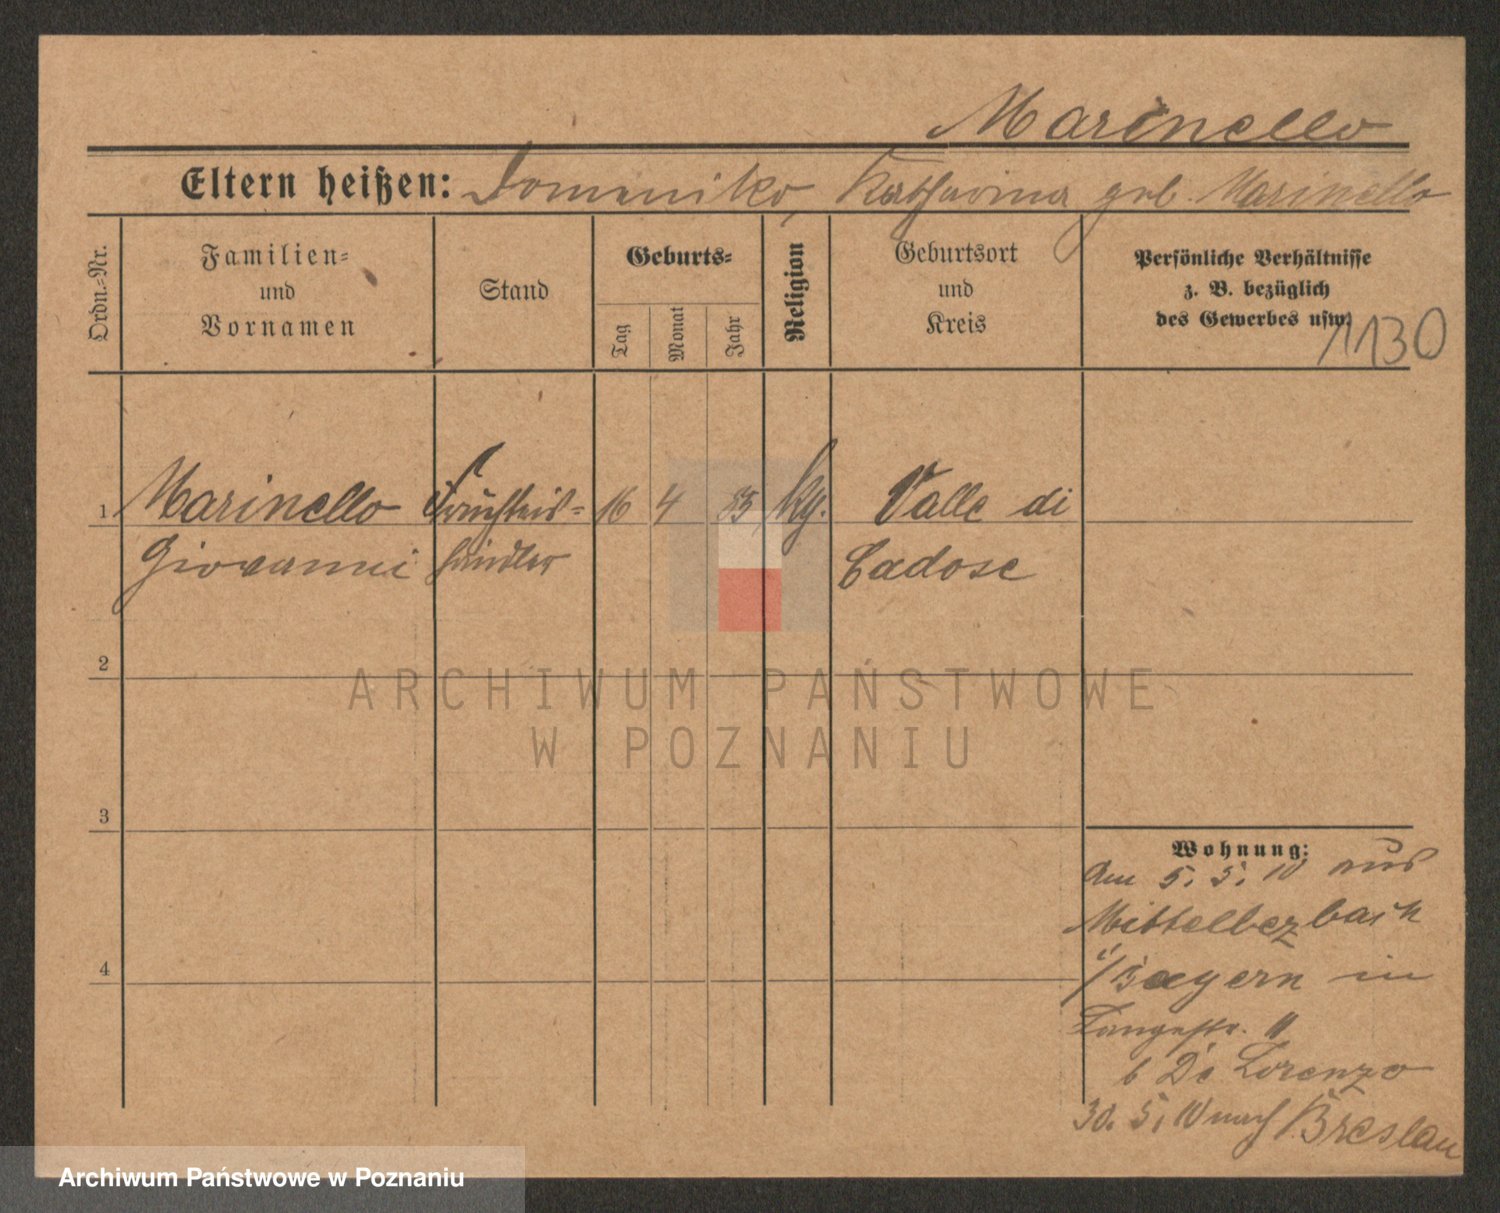 Marinello
Eltern heißen: Domeniko, Katharina geb. Marinello
Ordn.-Nr.
Familien-
und
Vornamen
Stand
Geburts-
Tag
Monat
Jahr
Religion
Geburtsort
und
Kreis
Persönliche Verhältnisse
z. B. bezüglich
des Gewerbes usw.
1130
1 Marinello 16 4 85 Valle di
Giovanni händler Cadose
2
3
4
Wohnung:
Am 5. 5. 10 aus
Mittelbexbach
i/Bayern in
Langestr. 11
b De Lorenzo
30. 5. 10 nach Breslau
ARCHIWUM PAŃSTWOWE
W POZNANIU
Archiwum Państwowe w Poznaniu